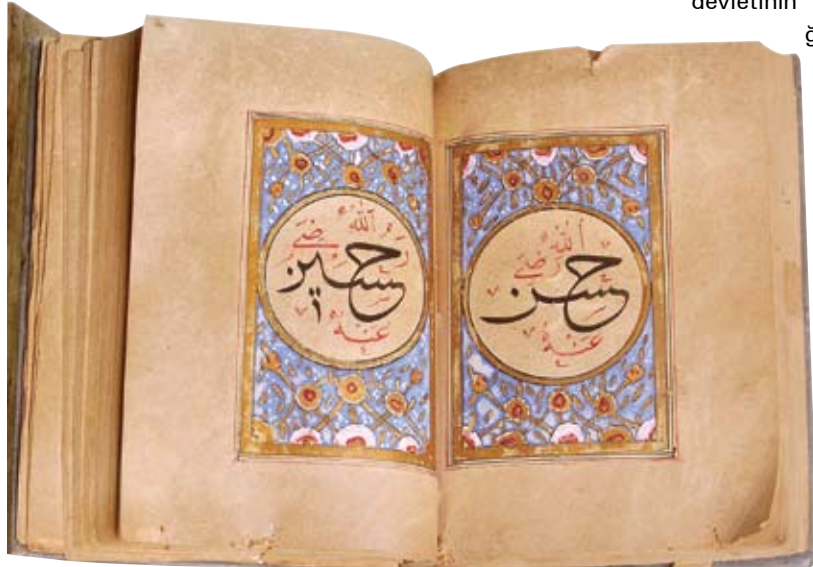 devletinin
ğ
حسن
رضي الله
عنه
حسين
رضي الله
عنه